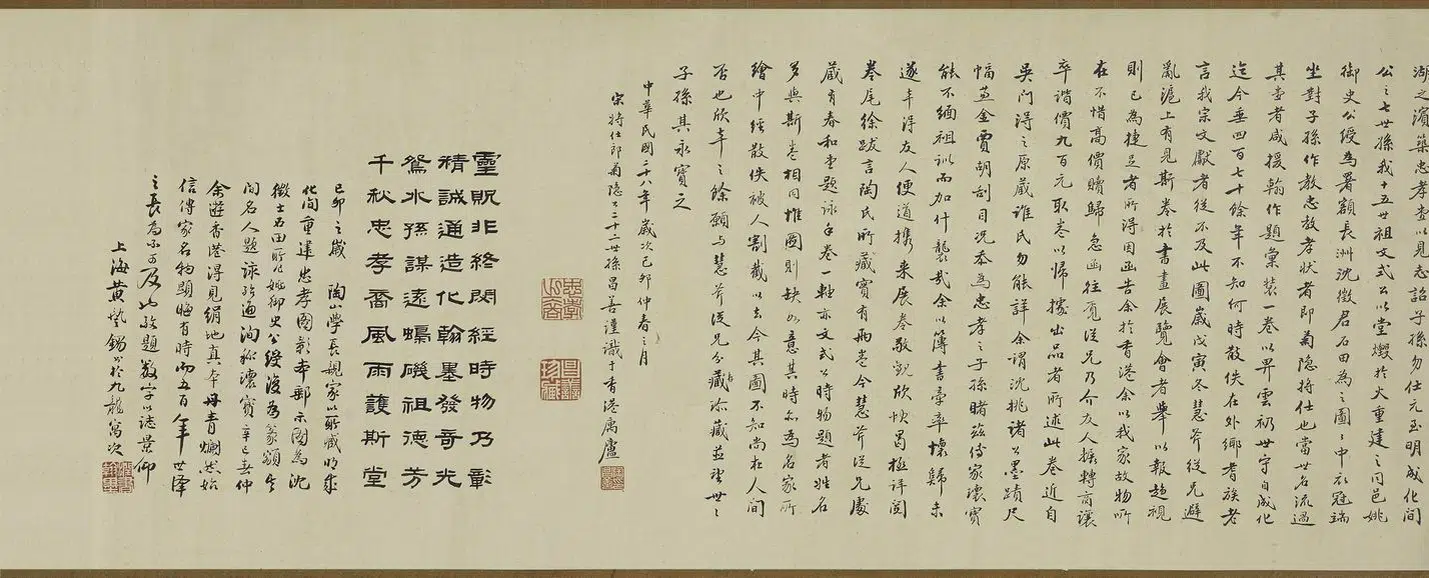 湖之濱築忠孝堂以見志詔子孫勿仕元至明成化間
公之七世孫我十五世祖文式公以堂燬於火重建之同邑姚
御史公綬為署額長洲沈徵君石田為之圖圖中衣冠端
坐對子孫作教忠教孝狀者即菊隱將仕也當世名流過
其堂者咸援翰作題彙裝一卷以畀雲礽世守自成化
迄今垂四百七十餘年不知何時散佚在外鄉耆族老
言我宗文獻者從不及此圖歲戊寅冬慧斧從兄避
亂滬上有見斯卷於書畫展覽會者舉以報趨視
則已為捷足者所得因函告余於香港余以我家故物所
在不惜高價贖歸急函往覓從兄乃介友人攘轉商讓
卒諧價九百元取卷以歸據出品者所述此卷近自
吳門得之原藏誰氏勿能詳余謂沈姚諸公墨蹟尺
幅兼金賈胡刮目況卷為忠孝之子孫睹茲傳家瓌寶
能不緬祖訓而加什襲哉余以簿書牽率懷歸未
遂年得友人便道攜來展卷敬觀欣忭曷極詳閱
卷尾徐跋言陶氏所藏實有兩卷今慧斧從兄處
藏有春和堂題詠手卷一軸亦文式公時物題者姓名
多與斯卷相同惟圖則缺如意其時亦為名家所
繪中經散佚被人割截以去今其圖不知尚在人間
否也欣幸之餘願與慧斧從兄分藏添藏並望世世
子孫其永寶之
中華民國二十八年歲次己卯仲春之月
宋特仕郎菊隱公二十二世孫昌善謹識于香港寓廬
忠孝
昌善
珍藏
靈貺非終閟經時物乃彰
精誠通造化翰墨發奇光
鴛水孫謀遠蠙磯祖德芳
千秋忠孝裔風雨護斯堂
己卯之歲陶小學長親家以所藏明成
化間重建忠孝圖影本郵示圖為沈
徵士石田所作姚御史公綬復為篆額其
間名人題詠殆遍洵稱瓌寶辛巳春仲
余遊香港得見絹地真本丹青爛然始
信傳家名物顯晦有時而五百年世澤
之長為不可及也敬題數字以誌景仰
上海黃蓺錫書於九龍寓次